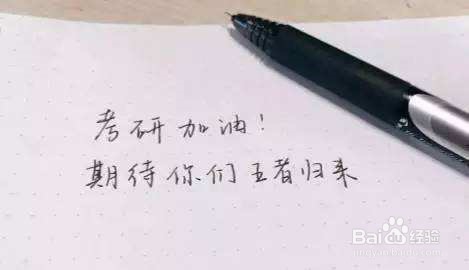 考研加油!
期待你们王者归来
Baidu经验